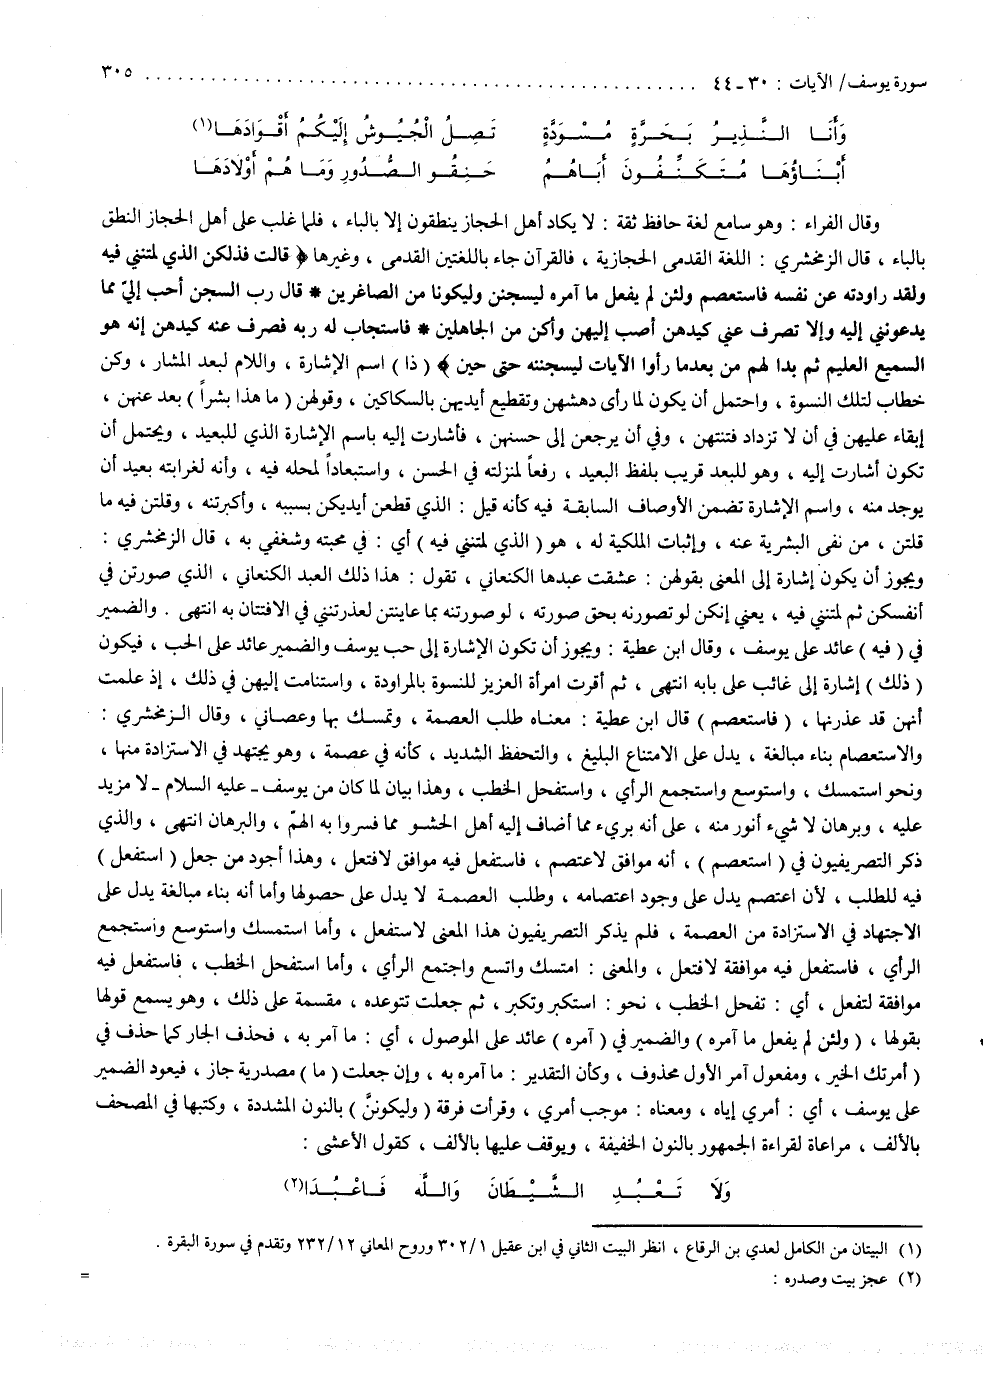 سورة يوسف/ الآيات : ٣٠-٤٤ ........................................................ ٣٠٥
وَأَنَا النَّذِيرُ بَحَرَّةٍ مُسْوَدَّةٍ تَصِلُ الْجُيُوشُ إِلَيْكُمُ أَقْوَادَهَا(١)
أَبْنَاؤُهَا مُتَكَنِّفُونَ أَبَاهُمُ حَنِقُو الصُّدُورِ وَمَا هُمْ أَوْلَادَهَا
وقال الفراء : وهو سامع لغة حافظ ثقة : لا يكاد أهل الحجاز ينطقون إلا بالباء ، فلما غلب على أهل الحجاز النطق
بالباء ، قال الزمخشري : اللغة القدمى الحجازية ، فالقرآن جاء باللغتين القدمى ، وغيرها ﴿ قالت فذلكن الذي لمتنني فيه
ولقد راودته عن نفسه فاستعصم ولئن لم يفعل ما آمره ليسجنن وليكونا من الصاغرين * قال رب السجن أحب إليّ مما
يدعونني إليه وإلا تصرف عني كيدهن أصب إليهن وأكن من الجاهلين * فاستجاب له ربه فصرف عنه كيدهن إنه هو
السميع العليم ثم بدا لهم من بعدما رأوا الآيات ليسجننه حتى حين ﴾ ( ذا ) اسم الإشارة ، واللام لبعد المشار ، وكن
خطاب لتلك النسوة ، واحتمل أن يكون لما رأى دهشهن وتقطيع أيديهن بالسكاكين ، وقولهن ( ما هذا بشراً ) بعد عنهن ،
إبقاء عليهن في أن لا تزداد فتنتهن ، وفي أن يرجعن إلى حسنهن ، فأشارت إليه باسم الإشارة الذي للبعيد ، ويحتمل أن
تكون أشارت إليه ، وهو للبعد قريب بلفظ البعيد ، رفعاً لمنزلته في الحسن ، واستبعاداً لمحله فيه ، وأنه لغرابته بعيد أن
يوجد منه ، واسم الإشارة تضمن الأوصاف السابقة فيه كأنه قيل : الذي قطعن أيديكن بسببه ، وأكبرتنه ، وقلتن فيه ما
قلتن ، من نفى البشرية عنه ، وإثبات الملكية له ، هو ( الذي لمتنني فيه ) أي : في محبته وشغفي به ، قال الزمخشري :
ويجوز أن يكون إشارة إلى المعنى بقولهن : عشقت عبدها الكنعاني ، تقول : هذا ذلك العبد الكنعاني ، الذي صورتن في
أنفسكن ثم لمتنني فيه ، يعني إنكن لو تصورنه بحق صورته ، لو صورتنه بما عاينتن لعذرتنني في الافتتان به انتهى . والضمير
في ( فيه ) عائد على يوسف ، وقال ابن عطية : ويجوز أن تكون الإشارة إلى حب يوسف والضمير عائد على الحب ، فيكون
( ذلك ) إشارة إلى غائب على بابه انتهى ، ثم أقرت امرأة العزيز للنسوة بالمراودة ، واستنامت إليهن في ذلك ، إذ علمت
أنهن قد عذرنها ، ( فاستعصم ) قال ابن عطية : معناه طلب العصمة ، وتمسك بها وعصاني ، وقال الزمخشري :
والاستعصام بناء مبالغة ، يدل على الامتناع البليغ ، والتحفظ الشديد ، كأنه في عصمة ، وهو يجتهد في الاستزادة منها ،
ونحو استمسك ، واستوسع واستجمع الرأي ، واستفحل الخطب ، وهذا بيان لما كان من يوسف ـ عليه السلام ـ لا مزيد
عليه ، وبرهان لا شيء أنور منه ، على أنه بريء مما أضاف إليه أهل الحشو مما فسروا به الهمّ ، والبرهان انتهى ، والذي
ذكر التصريفيون في ( استعصم ) ، أنه موافق لاعتصم ، فاستفعل فيه موافق لافتعل ، وهذا أجود من جعل ( استفعل )
فيه للطلب ، لأن اعتصم يدل على وجود اعتصامه ، وطلب العصمة لا يدل على حصولها وأما أنه بناء مبالغة يدل على
الاجتهاد في الاستزادة من العصمة ، فلم يذكر التصريفيون هذا المعنى لاستفعل ، وأما استمسك واستوسع واستجمع
الرأي ، فاستفعل فيه موافقة لافتعل ، والمعنى : امتسك واتسع واجتمع الرأي ، وأما استفحل الخطب ، فاستفعل فيه
موافقة لتفعل ، أي : تفحل الخطب ، نحو : استكبر وتكبر ، ثم جعلت تتوعده ، مقسمة على ذلك ، وهو يسمع قولها
بقولها ، ( ولئن لم يفعل ما آمره ) والضمير في ( آمره ) عائد على الموصول ، أي : ما آمر به ، فحذف الجار كما حذف في
( أمرتك الخير ، ومفعول آمر الأول محذوف ، وكأن التقدير : ما آمره به ، وإن جعلت ( ما ) مصدرية جاز ، فيعود الضمير
على يوسف ، أي : أمري إياه ، ومعناه : موجب أمري ، وقرأت فرقة ( وليكوننَّ ) بالنون المشددة ، وكتبها في المصحف
بالألف ، مراعاة لقراءة الجمهور بالنون الخفيفة ، ويوقف عليها بالألف ، كقول الأعشى :
وَلَا تَعْبُدِ الشَّيْطَانَ وَاللَّه فَاعْبُدَا(٢)
(١) البيتان من الكامل لعدي بن الرقاع ، انظر البيت الثاني في ابن عقيل ٣٠٢/١ وروح المعاني ٢٣٢/١٢ وتقدم في سورة البقرة .
(٢) عجز بيت وصدره : =